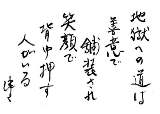 地獄への道は
善意で
舗装され
笑顔で
背中押す
人がいる